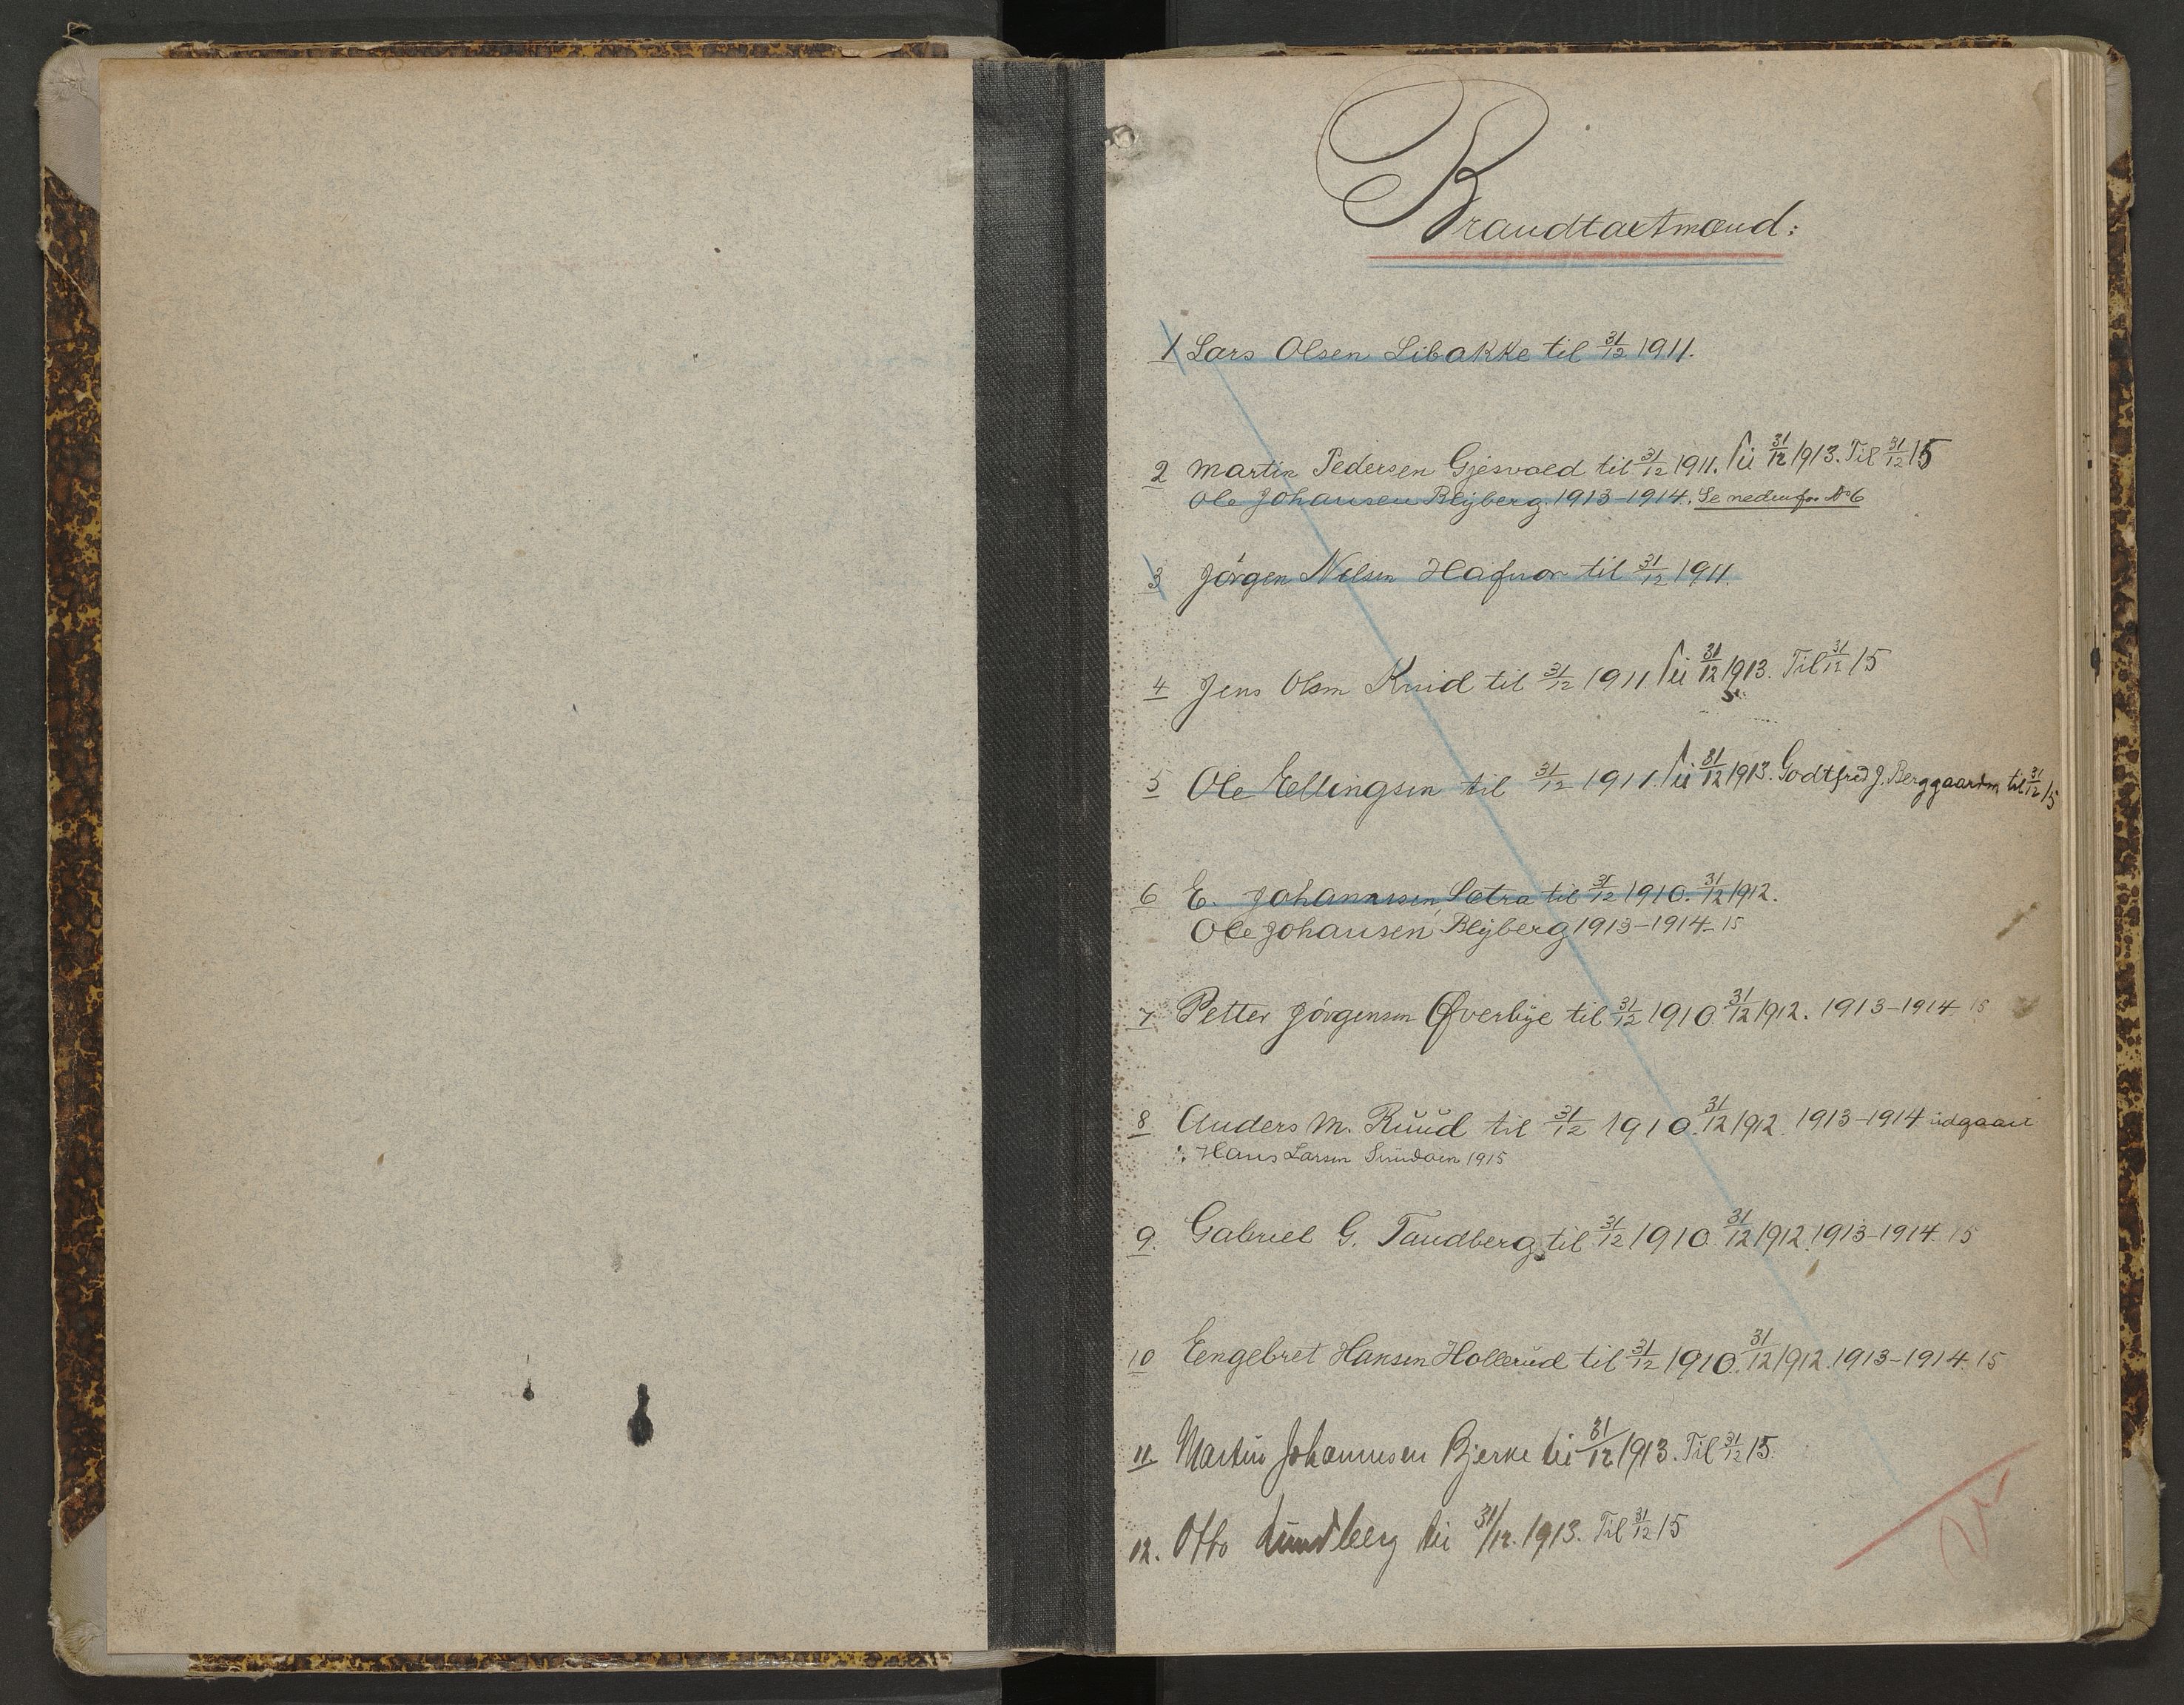 Brandtaxtmænd:
1 Lars Olsen Libakke til 31/12 1911.
2 Martin Pedersen Gjesvold til 31/12 1911. Til 31/12 1913. Til 31/12 15
Ole Johansen Blyberg. 1913-1914. Se nedenfor No 6
3 Jörgen Nilsen Hafnor til 31/12 1911.
4 Jens Olsen Knid til 31/12 1911. Til 31/12 1913. Til 31/12 15
5 Ole Ellingsen til 31/12 1911. Til 31/12 1913. Godtfred J. Berggaarden til 31/12 15
6 E. Johannesen Sætra til 31/12 1910. 31/12 1912.
Ole Johansen Blyberg 1913-1914-15
7 Petter Jörgensen Øverbye til 31/12 1910. 31/12 1912. 1913-1914 15
8 Anders M. Ruud til 31/12 1910. 31/12 1912. 1913-1914 udgaaet
Hans Larsen 1915
9. Gabriel G. Tandberg til 31/12 1910. 31/12 1912. 1913-1914. 15
10 Eengebret Hansen Hollerud til 31/12 1910. 31/12 1912. 1913-1914. 15
11. Martin Johannesen Bjerke til 31/12 1913. Til 31/12 15
12. Otto Lundberg til 31/12. 1913. Til 31/12 15